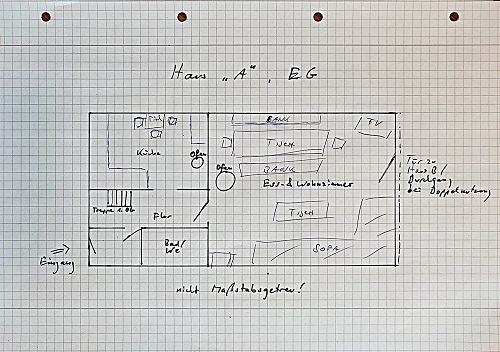 Haus „A", EG
BANK
TV
Tisch
TISCH
Küche
Ofen
Ofen
BANK
Ess- & Wohnzimmer
Tür zu
Haus B/
Durchgang
bei Doppelnutzung
Treppe n. Ob
Flur
TISCH
Bad/
WC
SOFA
Eingang
nicht Maßstabsgetreu!